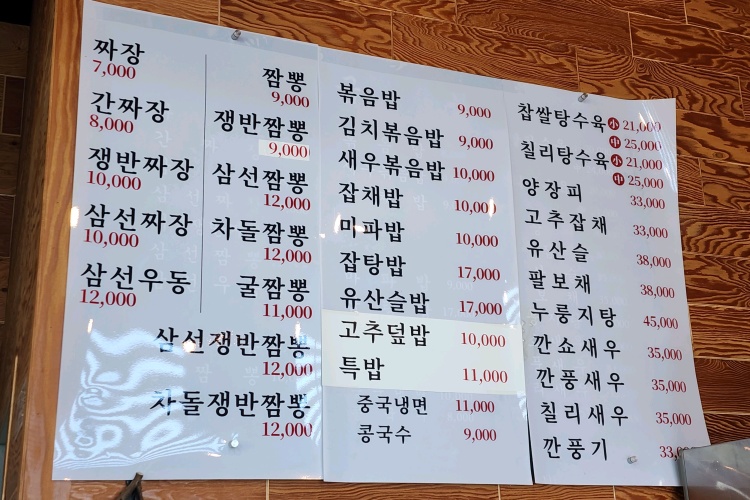 짜장
7,000
간짜장
8,000
쟁반짜장
10,000
삼선짜장
10,000
삼선우동
12,000
짬뽕
9,000
쟁반짬뽕
9,000
삼선짬뽕
12,000
차돌짬뽕
12,000
굴짬뽕
11,000
삼선쟁반짬뽕
12,000
차돌쟁반짬뽕
12,000
볶음밥 9,000
김치볶음밥 9,000
새우볶음밥 10,000
잡채밥 10,000
마파밥 10,000
잡탕밥 17,000
유산슬밥 17,000
고추덮밥 10,000
특밥 11,000
중국냉면 11,000
콩국수 9,000
찹쌀탕수육 小 21,000
中 25,000
칠리탕수육 小 21,000
中 25,000
양장피 33,000
고추잡채 33,000
유산슬 38,000
팔보채 38,000
누룽지탕 45,000
깐쇼새우 35,000
깐풍새우 35,000
칠리새우 35,000
깐풍기